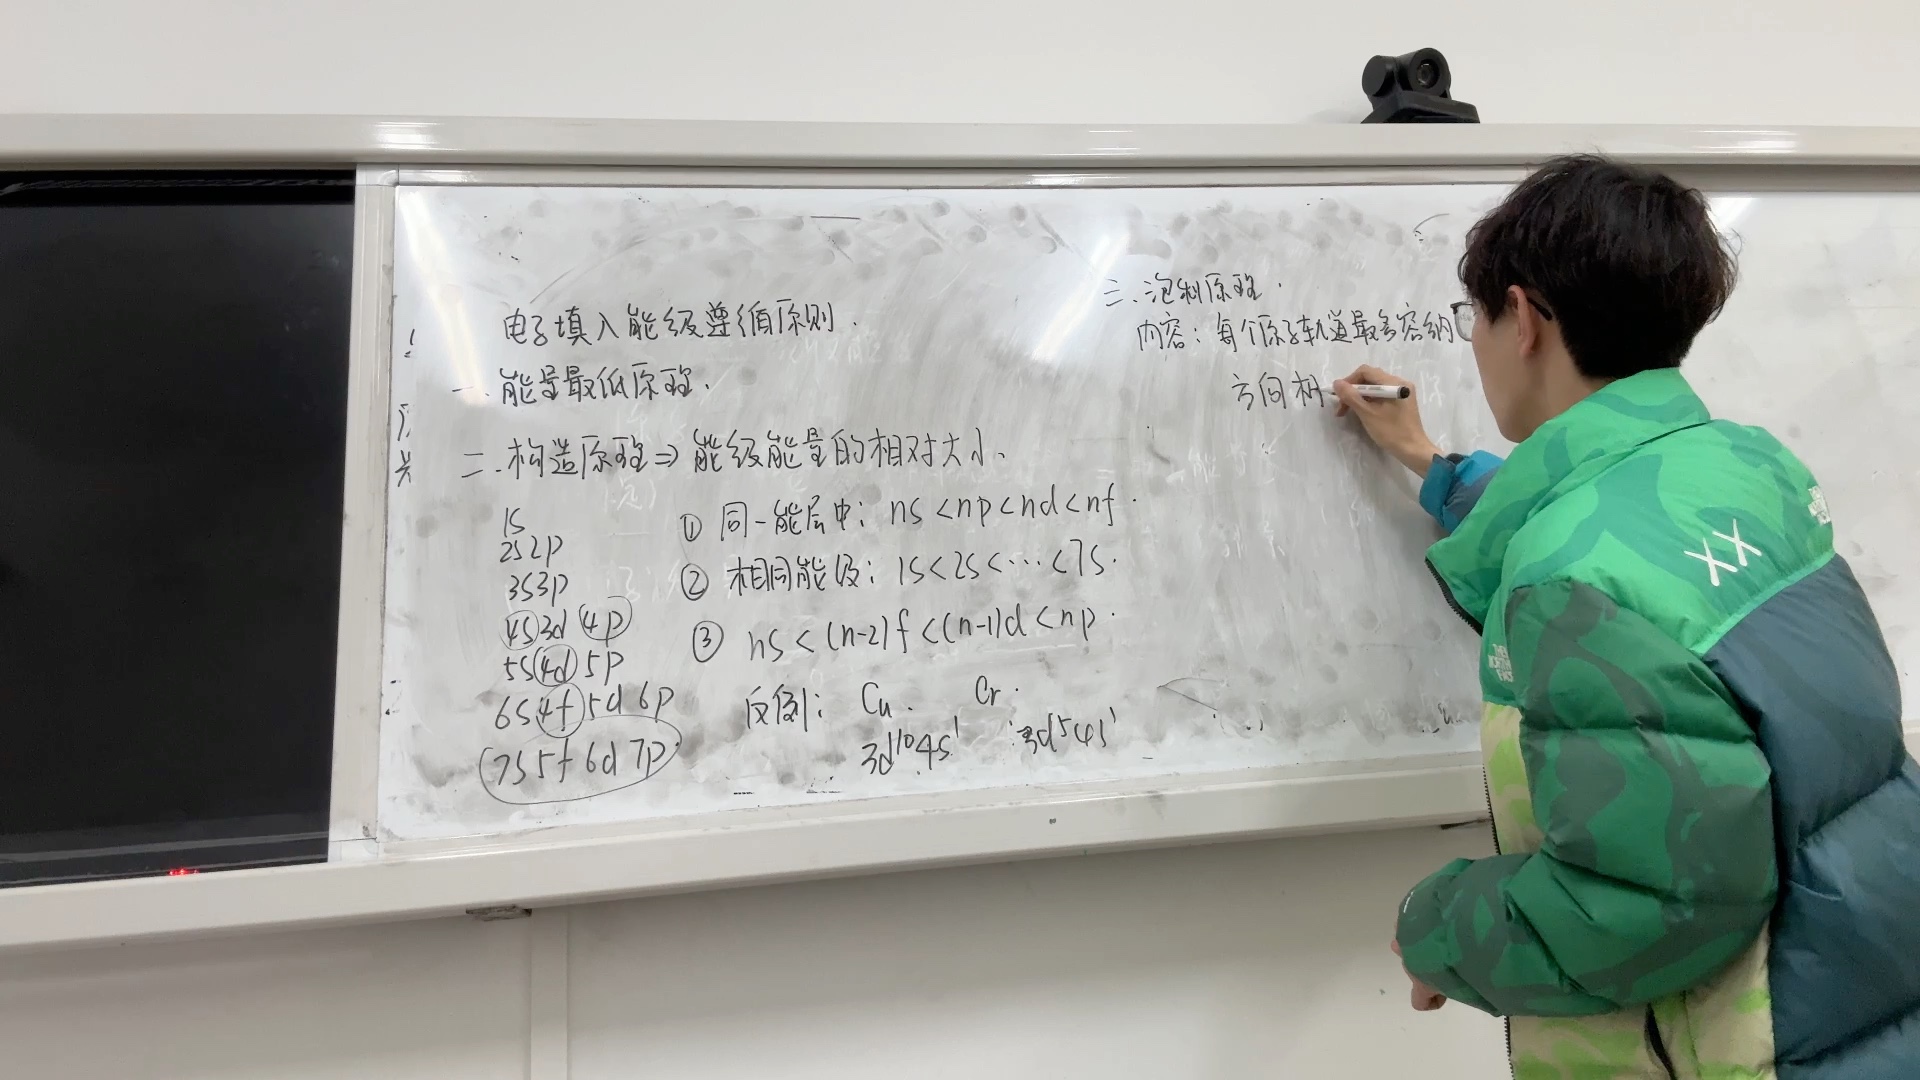 电子填入能级遵循原则.
一.能量最低原理.
二.构造原理⇒能级能量的相对大小.
1s
2s2p
3s3p
4s3d4p
5s4d5p
6s4f5d6p
7s5f6d7p
① 同一能层中: ns<np<nd<nf.
② 相同能级: 1s<2s<…<7s.
③ ns<(n-2)f<(n-1)d<np.
反例: Cu. Cr.
3d¹⁰4s¹ 3d⁵4s¹
三.泡利原理.
内容: 每个原子轨道最多容纳
方向相
XX
THE NORTH FACE